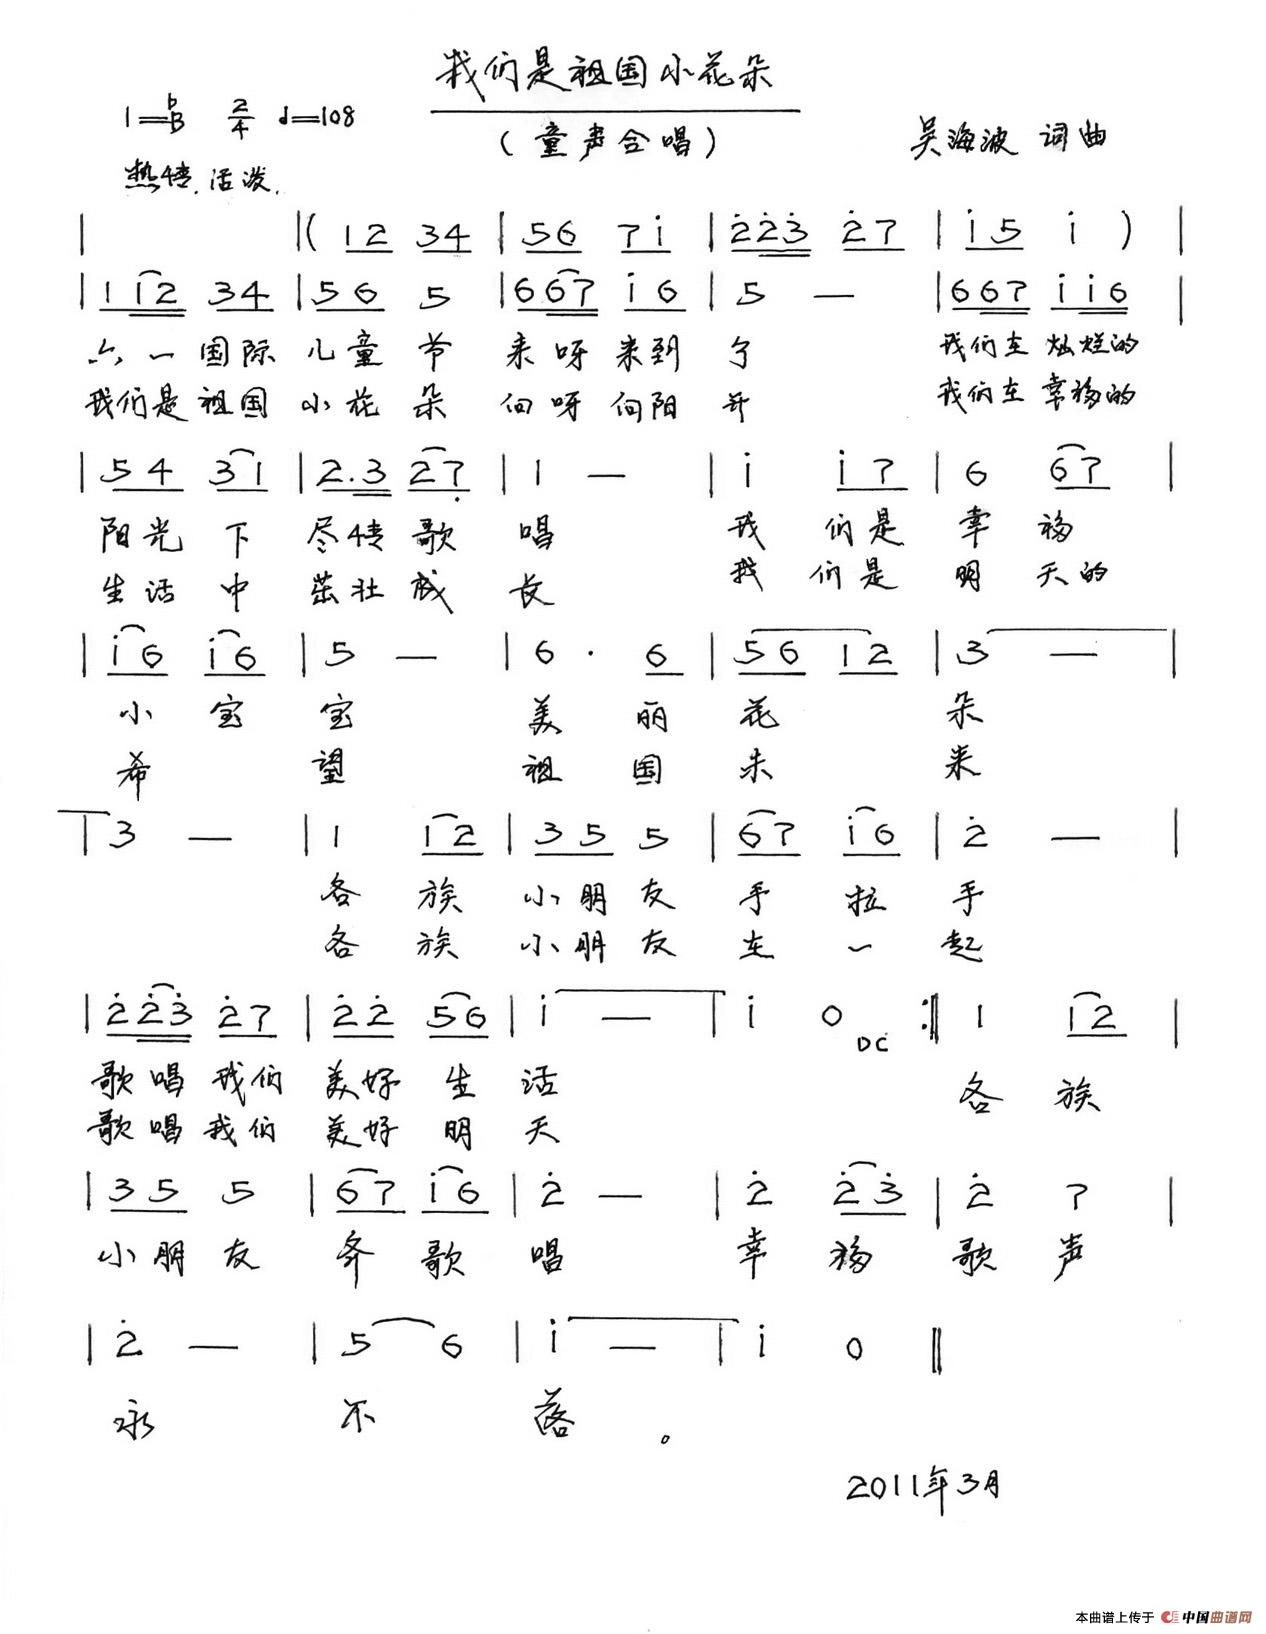 我们是祖国小花朵
1=♭B 2/4 ♩=108
(童声合唱)
吴海波 词曲
热情.活泼.
| |( 12 34 | 56 7i̇ | 2̇2̇3̇ 2̇7 | i̇5 i̇ ) |
| 112 34 | 56 5 | 667 i̇6 | 5 — | 667 i̇i̇6 |
六一国际 儿童节 来呀来到了 我们在灿烂的
我们是祖国 小花朵 向呀向阳开 我们在幸福的
| 54 31 | 2.3 27̣ | 1 — | i̇ i̇7 | 6 67 |
阳光下 尽情歌唱 我们是幸福
生活中 茁壮成长 我们是明天的
| i̇6 i̇6 | 5 — | 6 · 6 | 56 12 | 3 — |
小宝宝 美丽花朵
希望 祖国未来
| 3 — | 1 12 | 35 5 | 67 i̇6 | 2̇ — |
各族小朋友手拉手
各族小朋友在一起
| 2̇2̇3̇ 2̇7 | 2̇2̇ 56 | i̇ — | i̇ 0 :‖ 1 12 |
DC
歌唱我们美好生活 各族
歌唱我们美好明天
| 35 5 | 67 i̇6 | 2̇ — | 2̇ 2̇3̇ | 2̇ 7 |
小朋友齐歌唱 幸福歌声
| 2̇ — | 5 6 | i̇ — | i̇ 0 ‖
永不落。
2011年3月
本曲谱上传于 中国曲谱网